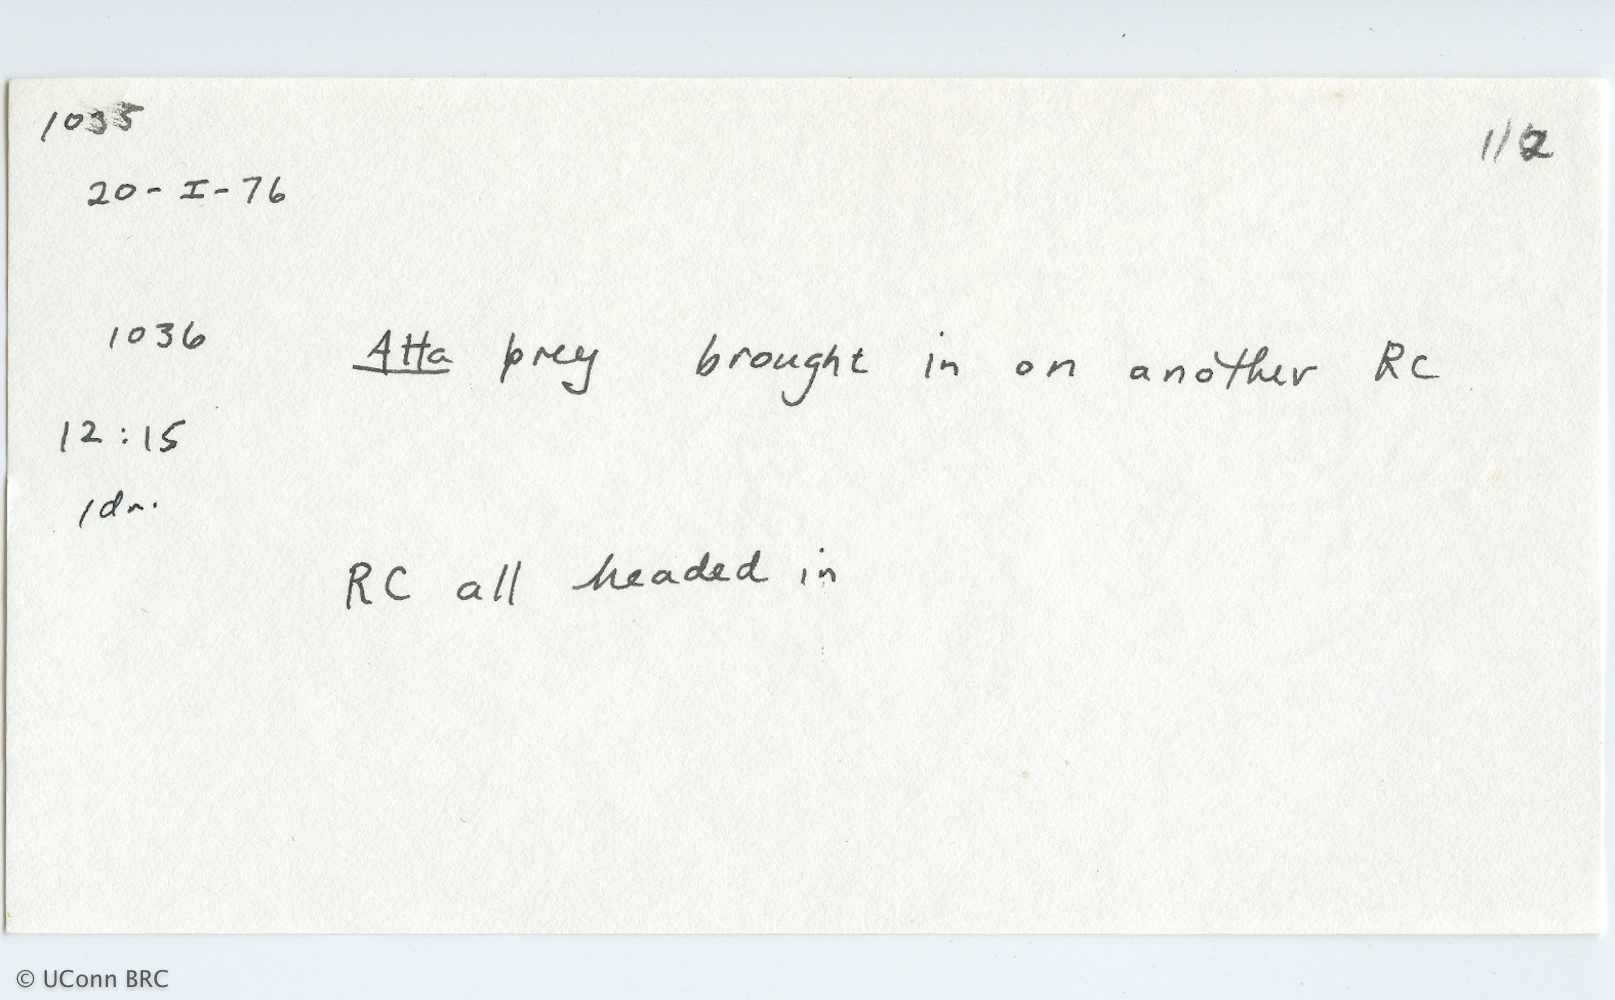 1035
1/2
20-I-76
1036
Atta prey brought in on another RC
12:15
1dr.
RC all headed in
© UConn BRC